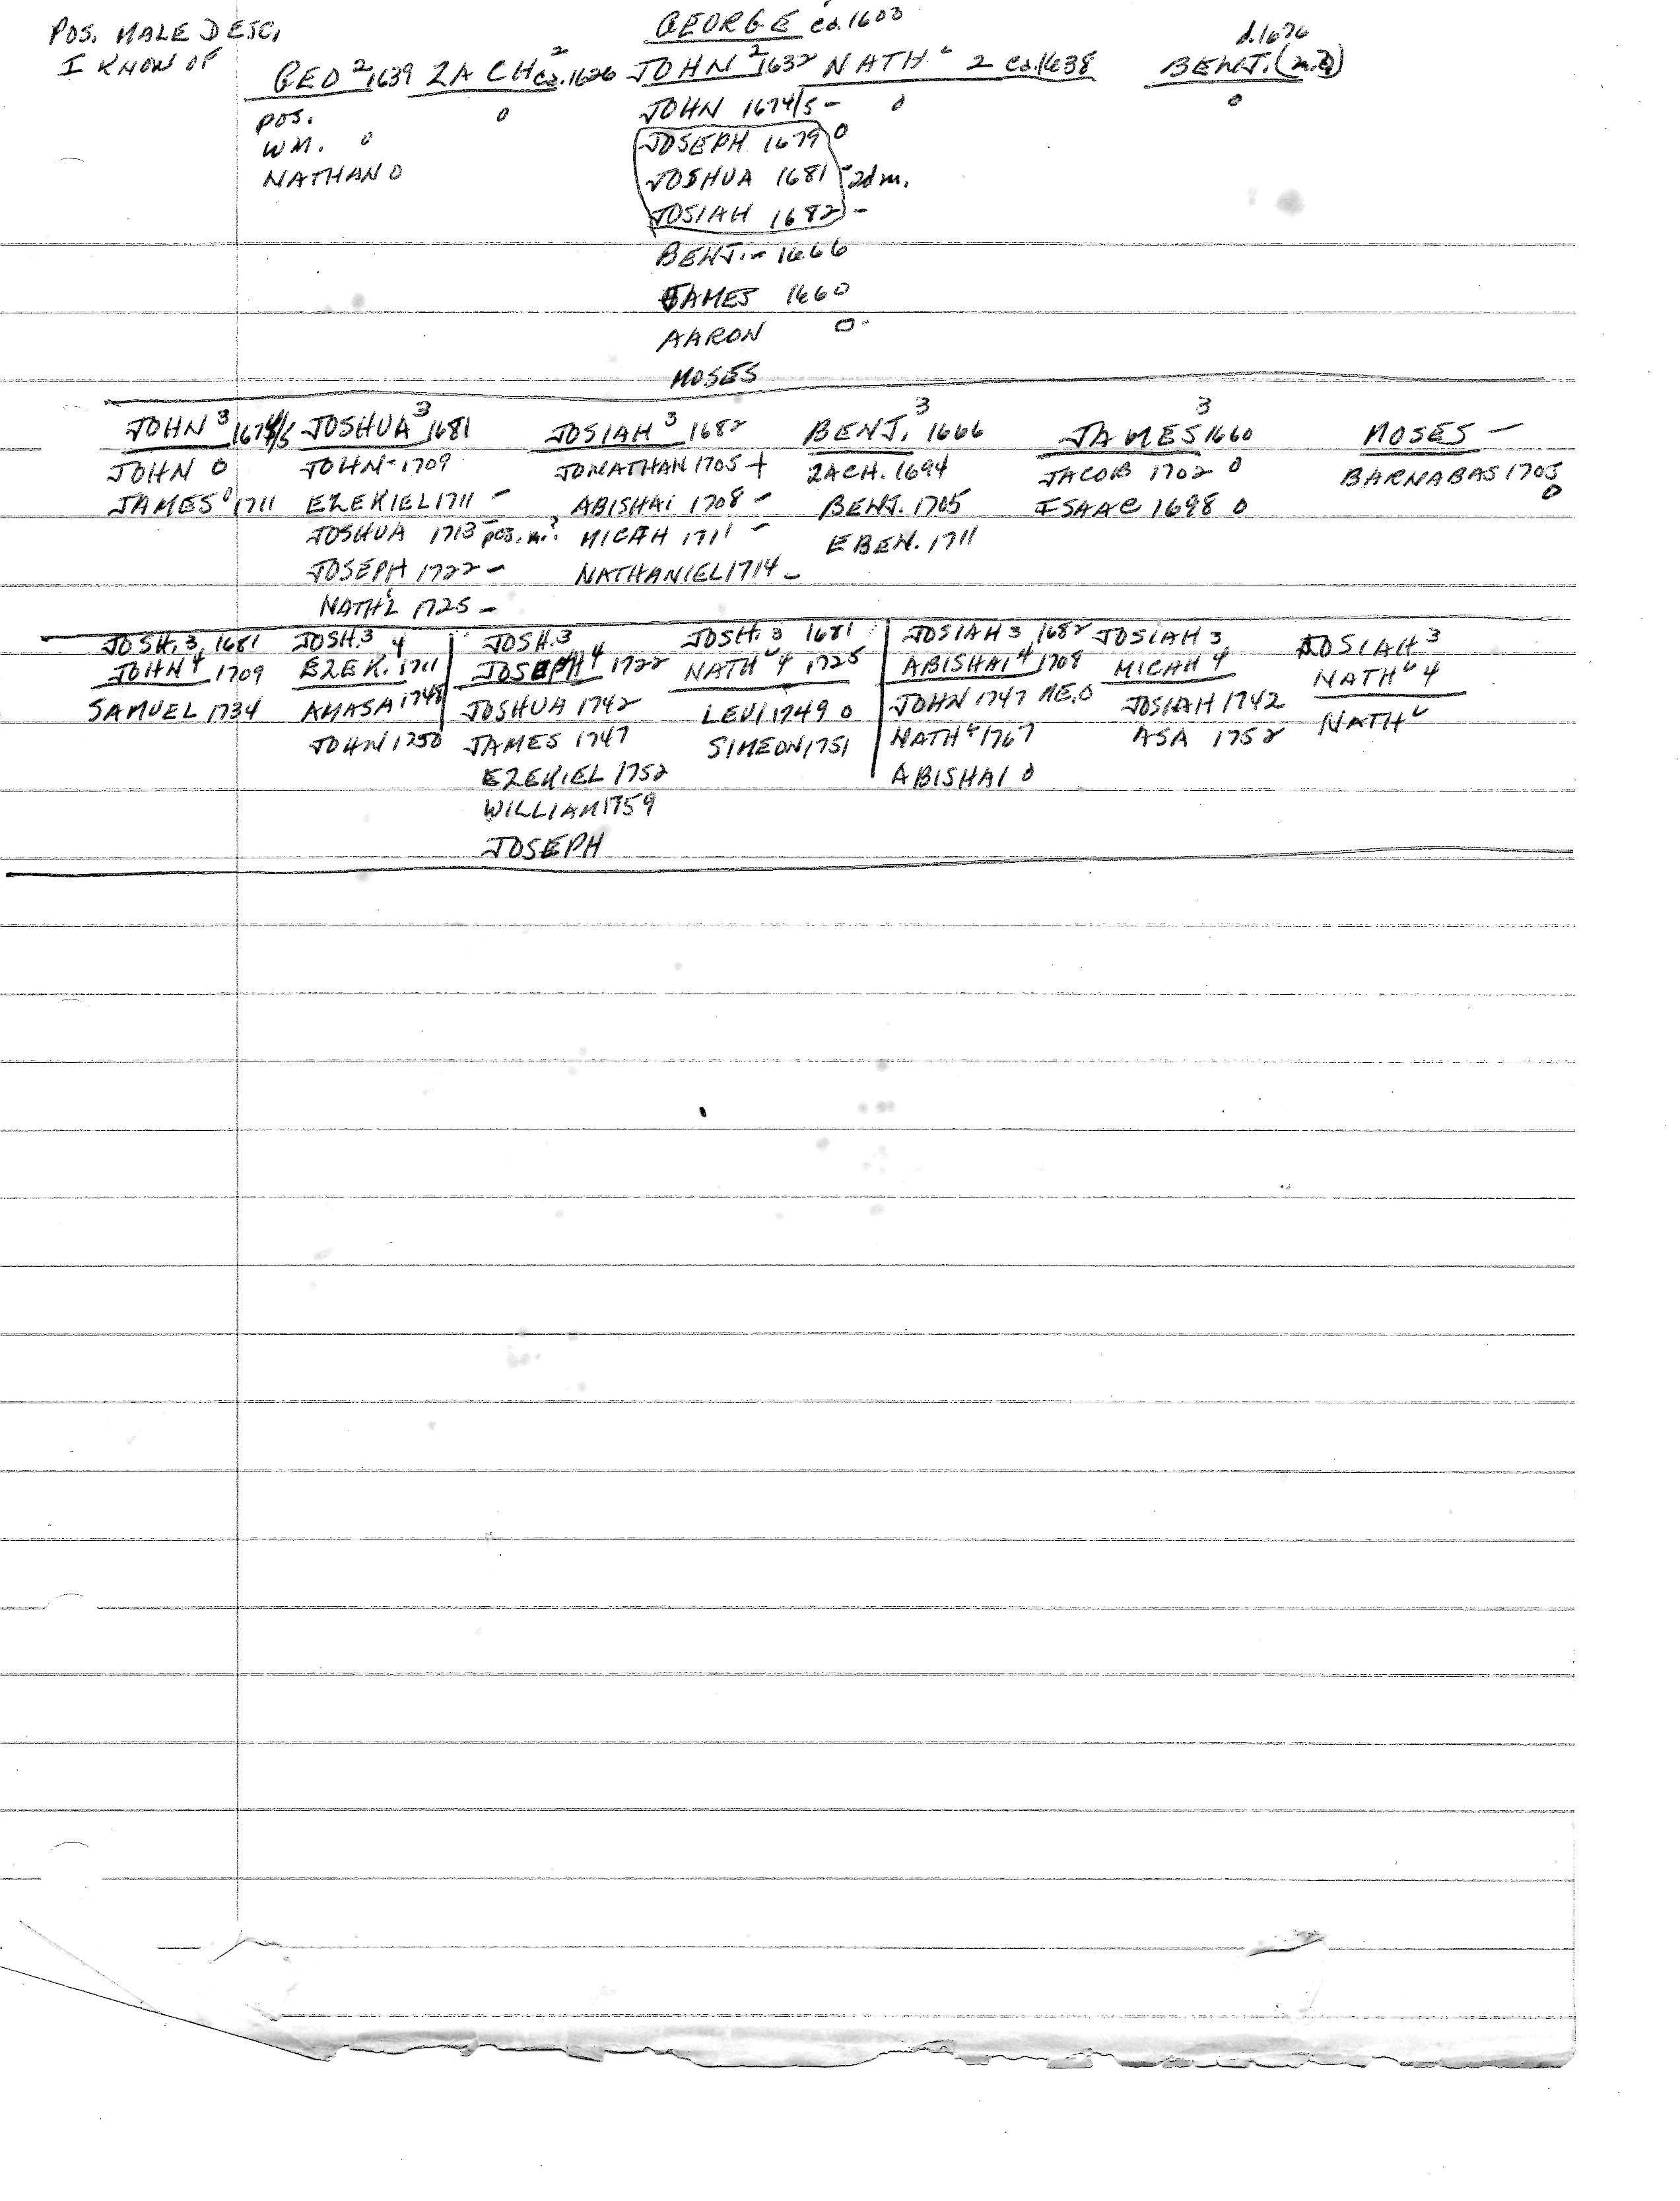 POS. MALE DESC. GEORGE ca.1603
I KNOW OF d.1676
GEO 2 1639 ZACH 2 ca.1626 JOHN 2 1632 NATHL 2 ca.1638 BENJ.
POS. 0 JOHN 1674/5 - 0 0
WM. 0 JOSEPH 1679 0
NATHAN 0 JOSHUA 1681 - 2d m.
JOSIAH 1682 -
BENJ. - 1666
JAMES 1660
AARON 0
MOSES
JOHN 3 1674/5 JOSHUA 3 1681 JOSIAH 3 1682 BENJ. 3 1666 JAMES 3 1660 MOSES -
JOHN 0 JOHN - 1709 JONATHAN 1705 + ZACH. 1694 JACOB 1702 0 BARNABAS 1705 0
JAMES 0 1711 EZEKIEL 1711 - ABISHAI 1708 - BENJ. 1705 ISAAC 1698 0
JOSHUA 1713 - pos. m.? MICAH 1711 - EBEN. 1711
JOSEPH 1722 - NATHANIEL 1714 -
NATH'L 1725 -
JOSH. 3, 1681 JOSH. 3 4 JOSH. 3 JOSH. 3 1681 JOSIAH 3 1682 JOSIAH 3 JOSIAH 3
JOHN 4 1709 EZEK. 1711 JOSEPH 4 1722 NATHL 4 1725 ABISHAI 4 1708 MICAH 4 NATHL 4
SAMUEL 1734 AMASA 1748 JOSHUA 1742 LEVI 1749 0 JOHN 1747 ME. 0 JOSIAH 1742 NATHL
JOHN 1750 JAMES 1747 SIMEON 1751 NATHL 1767 ASA 1752
EZEKIEL 1752 ABISHAI 0
WILLIAM 1759
JOSEPH